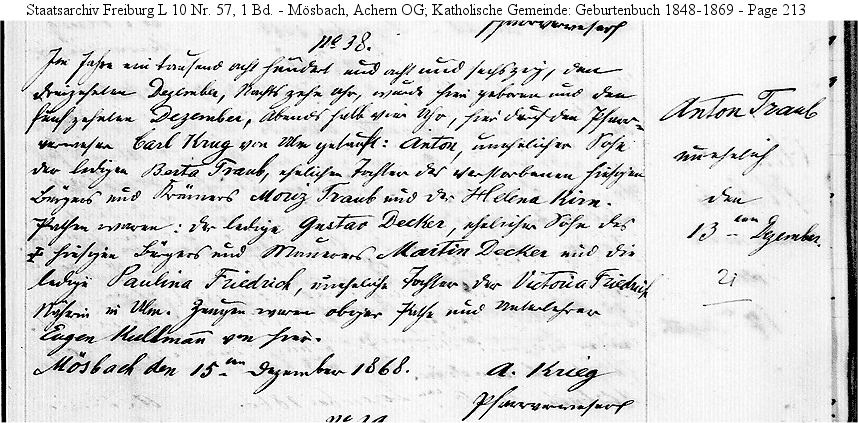 Staatsarchiv Freiburg L 10 Nr. 57, 1 Bd. - Mösbach, Achern OG; Katholische Gemeinde: Geburtenbuch 1848-1869 - Page 213
Pfarrverweser
No 38.
Im Jahre ein tausend acht hundert und acht und sechszig, den
dreizehnten Dezember, Nachts zehn Uhr, wurde hier geboren und den
fünfzehnten Dezember, Abends halb vier Uhr, hier durch den Pfarr-
verweser Carl Krug von Ulm getauft: Anton, unehelicher Sohn
der ledigen Berta Traub, ehelichen Tochter des verstorbenen hiesigen
Bürgers und Krämers Moriz Traub und der Helena Kirn.
Pathen waren: der ledige Gustav Decker, ehelicher Sohn des
hiesigen Bürgers und Maurers Martin Decker und die
ledige Paulina Friedrich, uneheliche Tochter der Victoria Friedrich
Nähterin in Ulm. Zeugen waren obiger Pathe und Unterlehrer
Eugen Kullmann von hier.
Mösbach den 15ten Dezember 1868. A. Krieg
Pfarrverweser
Anton Traub
unehelich
den
13ten Dezember.
21